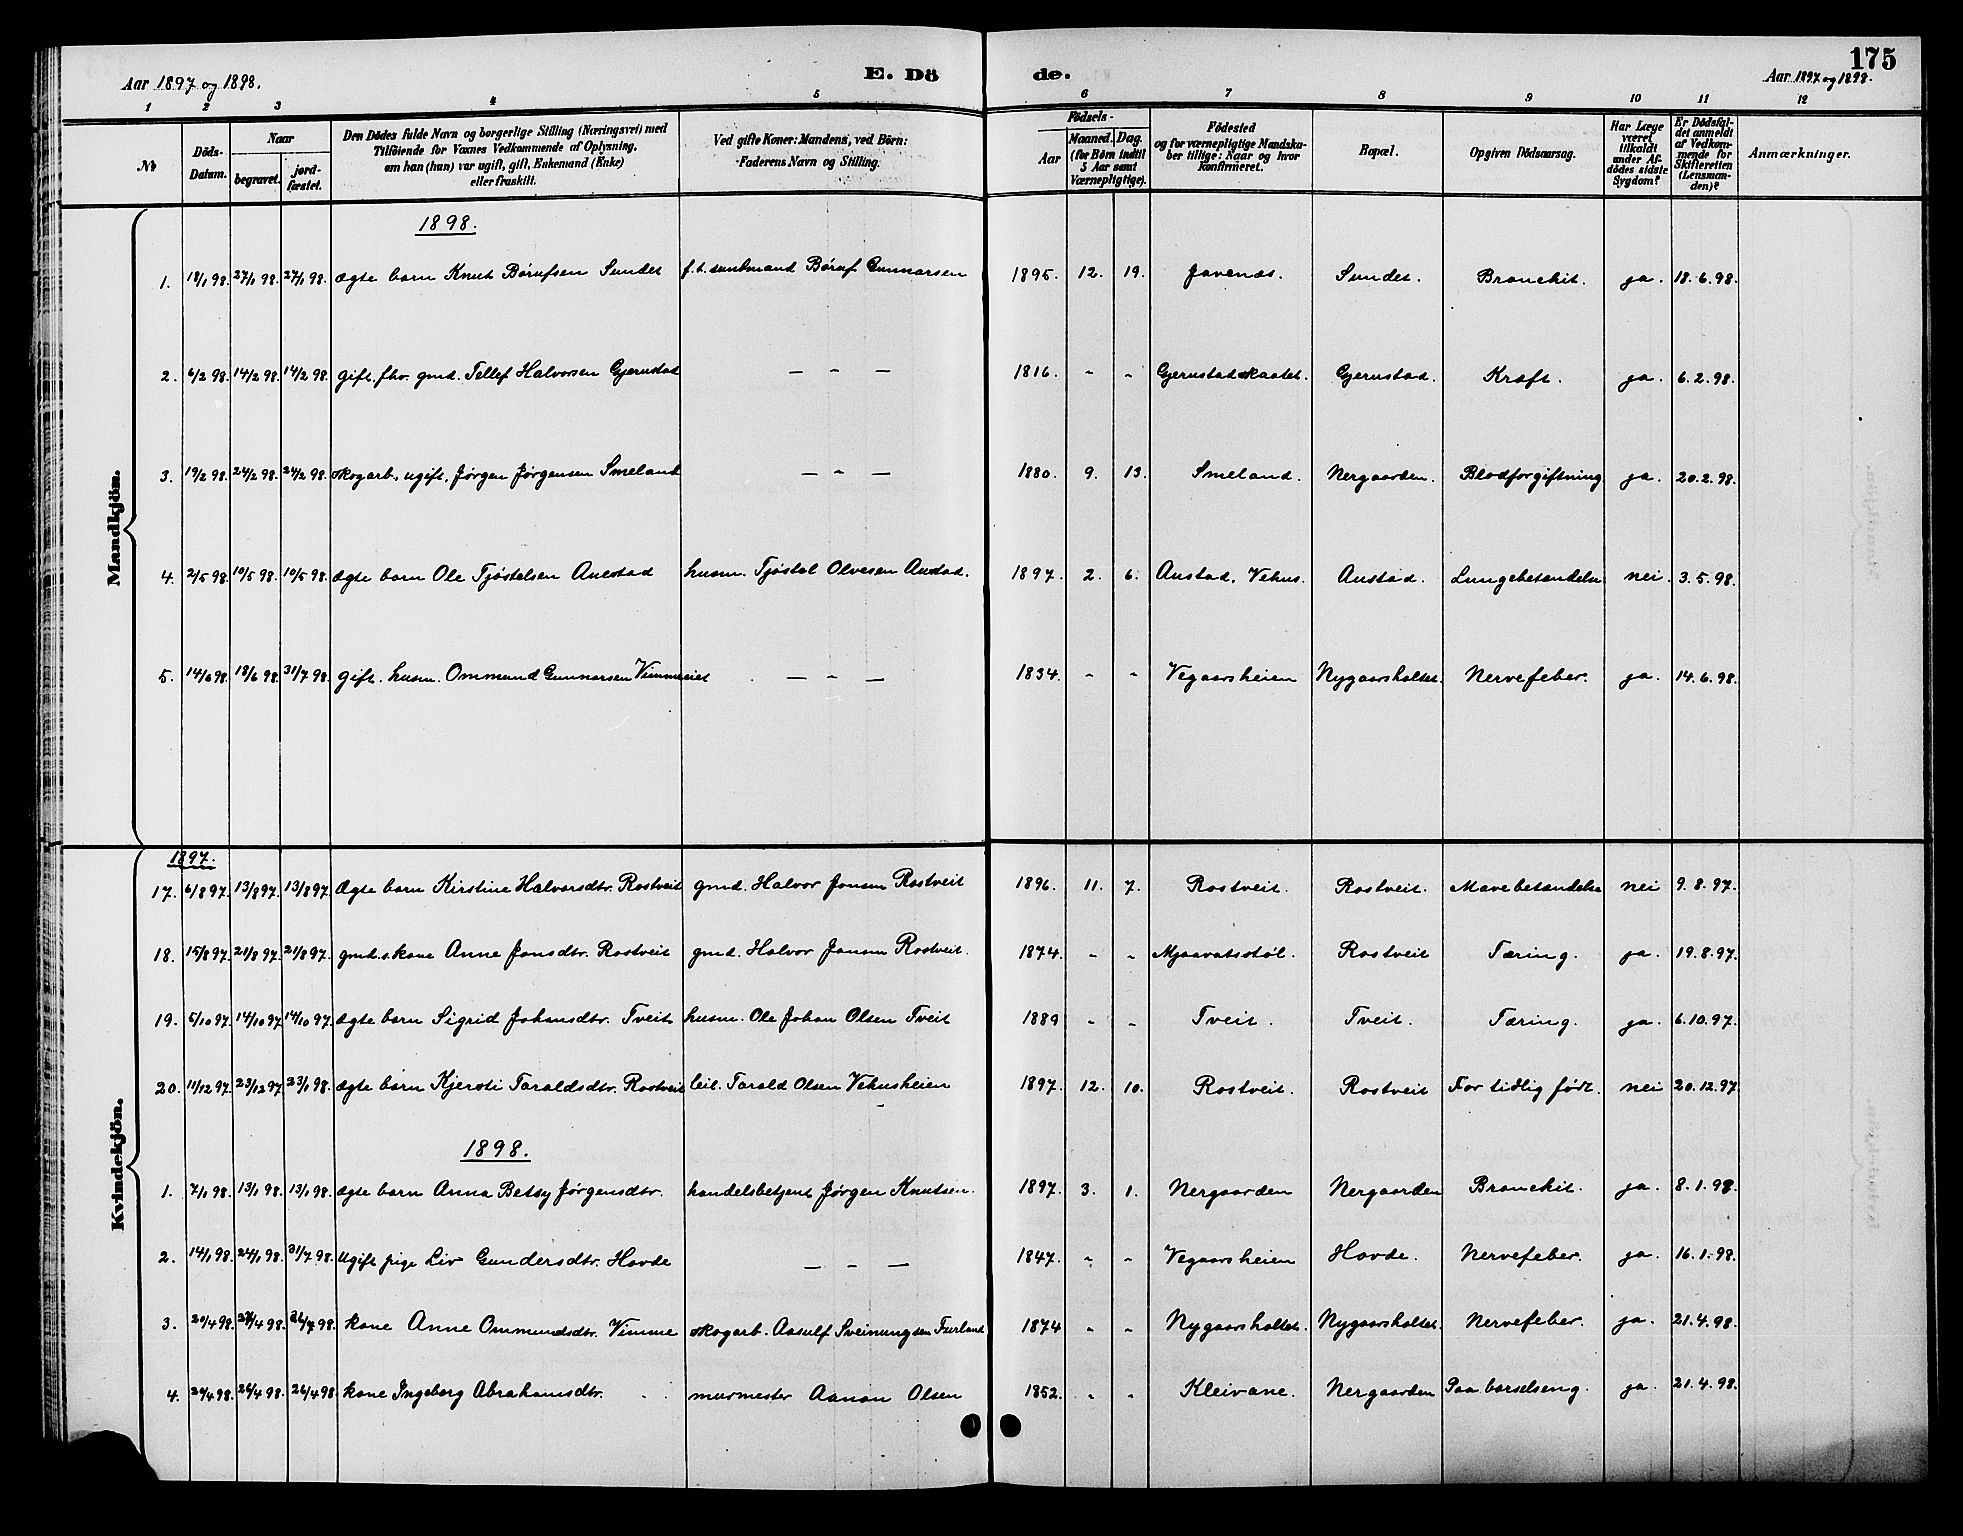 175
Aar 1897 og 1898. E. Dö de. Aar 1897 og 1898.
1 2 3 4 5 6 7 8 9 10 11 12
№ Döds-Datum. Naar begravet. jordfæstet. Den Dödes fulde Navn og borgerlige Stilling (Næringsvei) med Tilföiende for Voxnes Vedkommende af Oplysning, om han (hun) var ugift, gift, Enkemand (Enke) eller fraskilt. Ved gifte Koner: Mandens, ved Börn: Faderens Navn og Stilling. Födsels- Aar Maaned. Dag. (for Börn indtil 5 Aar samt Værnepligtige). Födested og for værnepligtige Mandskaber tillige: Naar og hvor Konfirmeret. Bopæl. Opgiven Dödsaarsag. Har Læge været tilkaldt under Afdödes sidste Sygdom? Er Dödsfaldet anmeldt af Vedkommende for Skifteretten (Lensmanden)? Anmærkninger.
Mandkjön.
1898.
1. 18/1 98. 27/1 98. 27/1 98. ægte barn Knut Børufsen Sundet f.t. sundmand Børuf Gunnarsen 1895. 12. 19. Javenæs. Sundet. Bronchit. ja. 18.6.98.
2. 6/2 98. 14/2 98. 14/2 98. gift. fhv. gmd. Tellef Halvorsen Gjerustad — - — 1816. - - Gjerustadskaatet. Gjerustad. Kræft. ja. 6.2.98.
3. 19/2 98. 24/2 98. 24/2 98. skogarb., ugift, Jørgen Jørgensen Smeland — - — 1880. 9. 13. Smeland. Nergaarden. Blodforgiftning ja. 20.2.98.
4. 2/5 98. 10/5 98. 10/5 98. ægte barn Ole Tjøstelsen Austad husm. Tjøstel Olvesen Austad. 1897. 2. 6. Austad, Vehus. Austad. Lungebetændelse nei. 3.5.98.
5. 14/6 98. 18/6 98. 31/7 98. gift. husm. Ommund Gunnarsen Vimmeeiet — - — 1834. - - Vegaarsheien Nygaarsholtet. Nervefeber. ja. 14.6.98.
Kvindekjön.
1897.
17. 6/8 97. 13/8 97. 13/8 97. Ægte barn Kirstine Halvorsdtr. Rostveit gmd. Halvor Jonsen Rostveit 1896. 11. 7. Rostveit. Rostveit. Mavebetændelse nei 9.8.97.
18. 15/8 97. 21/8 97. 21/8 97. gmd.s kone Anne Jonsdtr. Rostveit gmd. Halvor Jonsen Rostveit. 1874. - - Mjaavatsstøl. Rostveit Tæring. ja. 19.8.97.
19. 5/10 97. 14/10 97. 14/10 97. ægte barn Sigrid Johansdtr. Tveit husm. Ole Johan Olsen Tveit 1889 - - Tveit. Tveit. Tæring. ja. 6.10.97.
20. 11/12 97. 23/12 97. 23/1 98. ægte barn Kjersti Taraldsdtr. Rostveit leil. Tarald Olsen Vehusheien 1897. 12. 10. Rostveit. Rostveit For tidlig født. nei 20.12.97.
1898.
1. 7/1 98. 13/1 98. 13/1 98. ægte barn Anna Betsy Jørgensdtr. handelsbetjent Jørgen Knutsen. 1897. 3. 1. Nergaarden Nergaarden Bronchit. ja. 8.1.98.
2. 14/1 98. 24/1 98. 31/7 98. Ugift pige Liv Gundersdtr. Hovde — - — 1847. - - Vegaarsheien Hovde. Nervefeber. ja. 16.1.98.
3. 20/4 98. 28/4 98. 26/7 98. kone Anne Ommundsdtr. Vimme skogarb. Aasulf Sveinungsen Furland 1874 - - Nygaarsholtet. Nygaarsholtet. Nervefeber. ja. 21.4.98.
4. 20/4 98. 26/4 98. 26/4 98 kone Ingeborg Abrahamsdtr. murmester Aanon Olsen 1852. - - Kleivane. Nergaarden Paa barselseng. ja. 21.4.98.